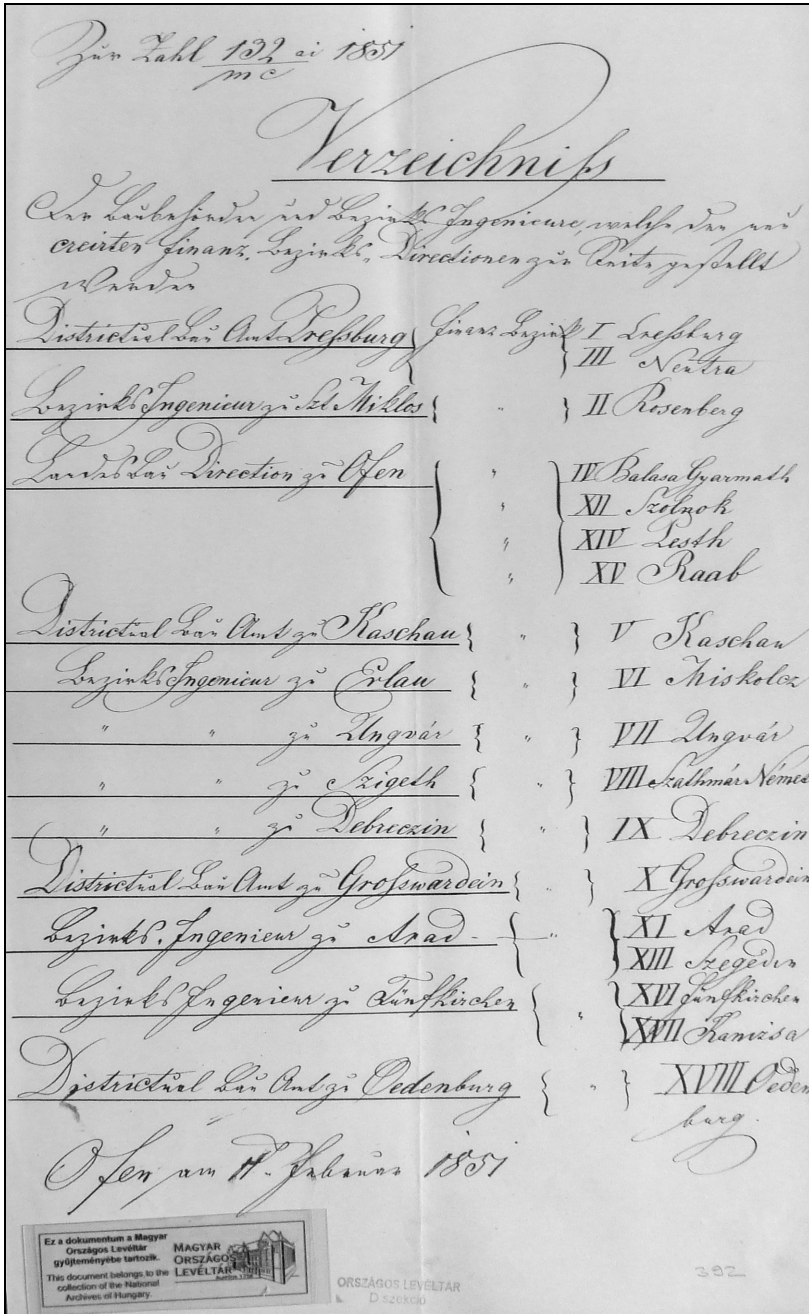 Zur Zahl 132 ai 1851
mc
Verzeichniß
Der Baubehörden und Bezirks Ingenieure, welche den neu
creirten Finanz. Bezirks. Directionen zur Seite gestellt
werden
Districtual Bau Amt Preßburg { Finanz Bezirk } I Preßburg
III Neutra
Bezirks Ingenieur zu Szt Miklos { " } II Rosenberg
Landesbau Direction zu Ofen { " } IV Balasa Gyarmath
" XII Szolnok
" XIV Pesth
" XV Raab
Districtual Bau Amt zu Kaschau { " } V Kaschau
Bezirks Ingenieur zu Erlau { " } VI Miskolcz
" " zu Ungvár { " } VII Ungvár
" " zu Szigeth { " } VIII Szathmár Német
" " zu Debreczin { " } IX Debreczin
Districtual Bau Amt zu Großwardein { " } X Großwardein
Bezirks. Ingenieur zu Arad - { " } XI Arad
XIII Szegedin
Bezirks Ingenieur zu Fünfkirchen { " } XVI Fünfkirchen
XVII Kanizsa
Districtual Bau Amt zu Oedenburg { " } XVIII Oeden
burg.
Ofen am Februar 1851
Ez a dokumentum a Magyar
Országos Levéltár
gyűjteményébe tartozik.
This document belongs to the
collection of the National
Archives of Hungary.
MAGYAR
ORSZÁGOS
LEVÉLTÁR
ORSZÁGOS LEVÉLTÁR
D szekció
392